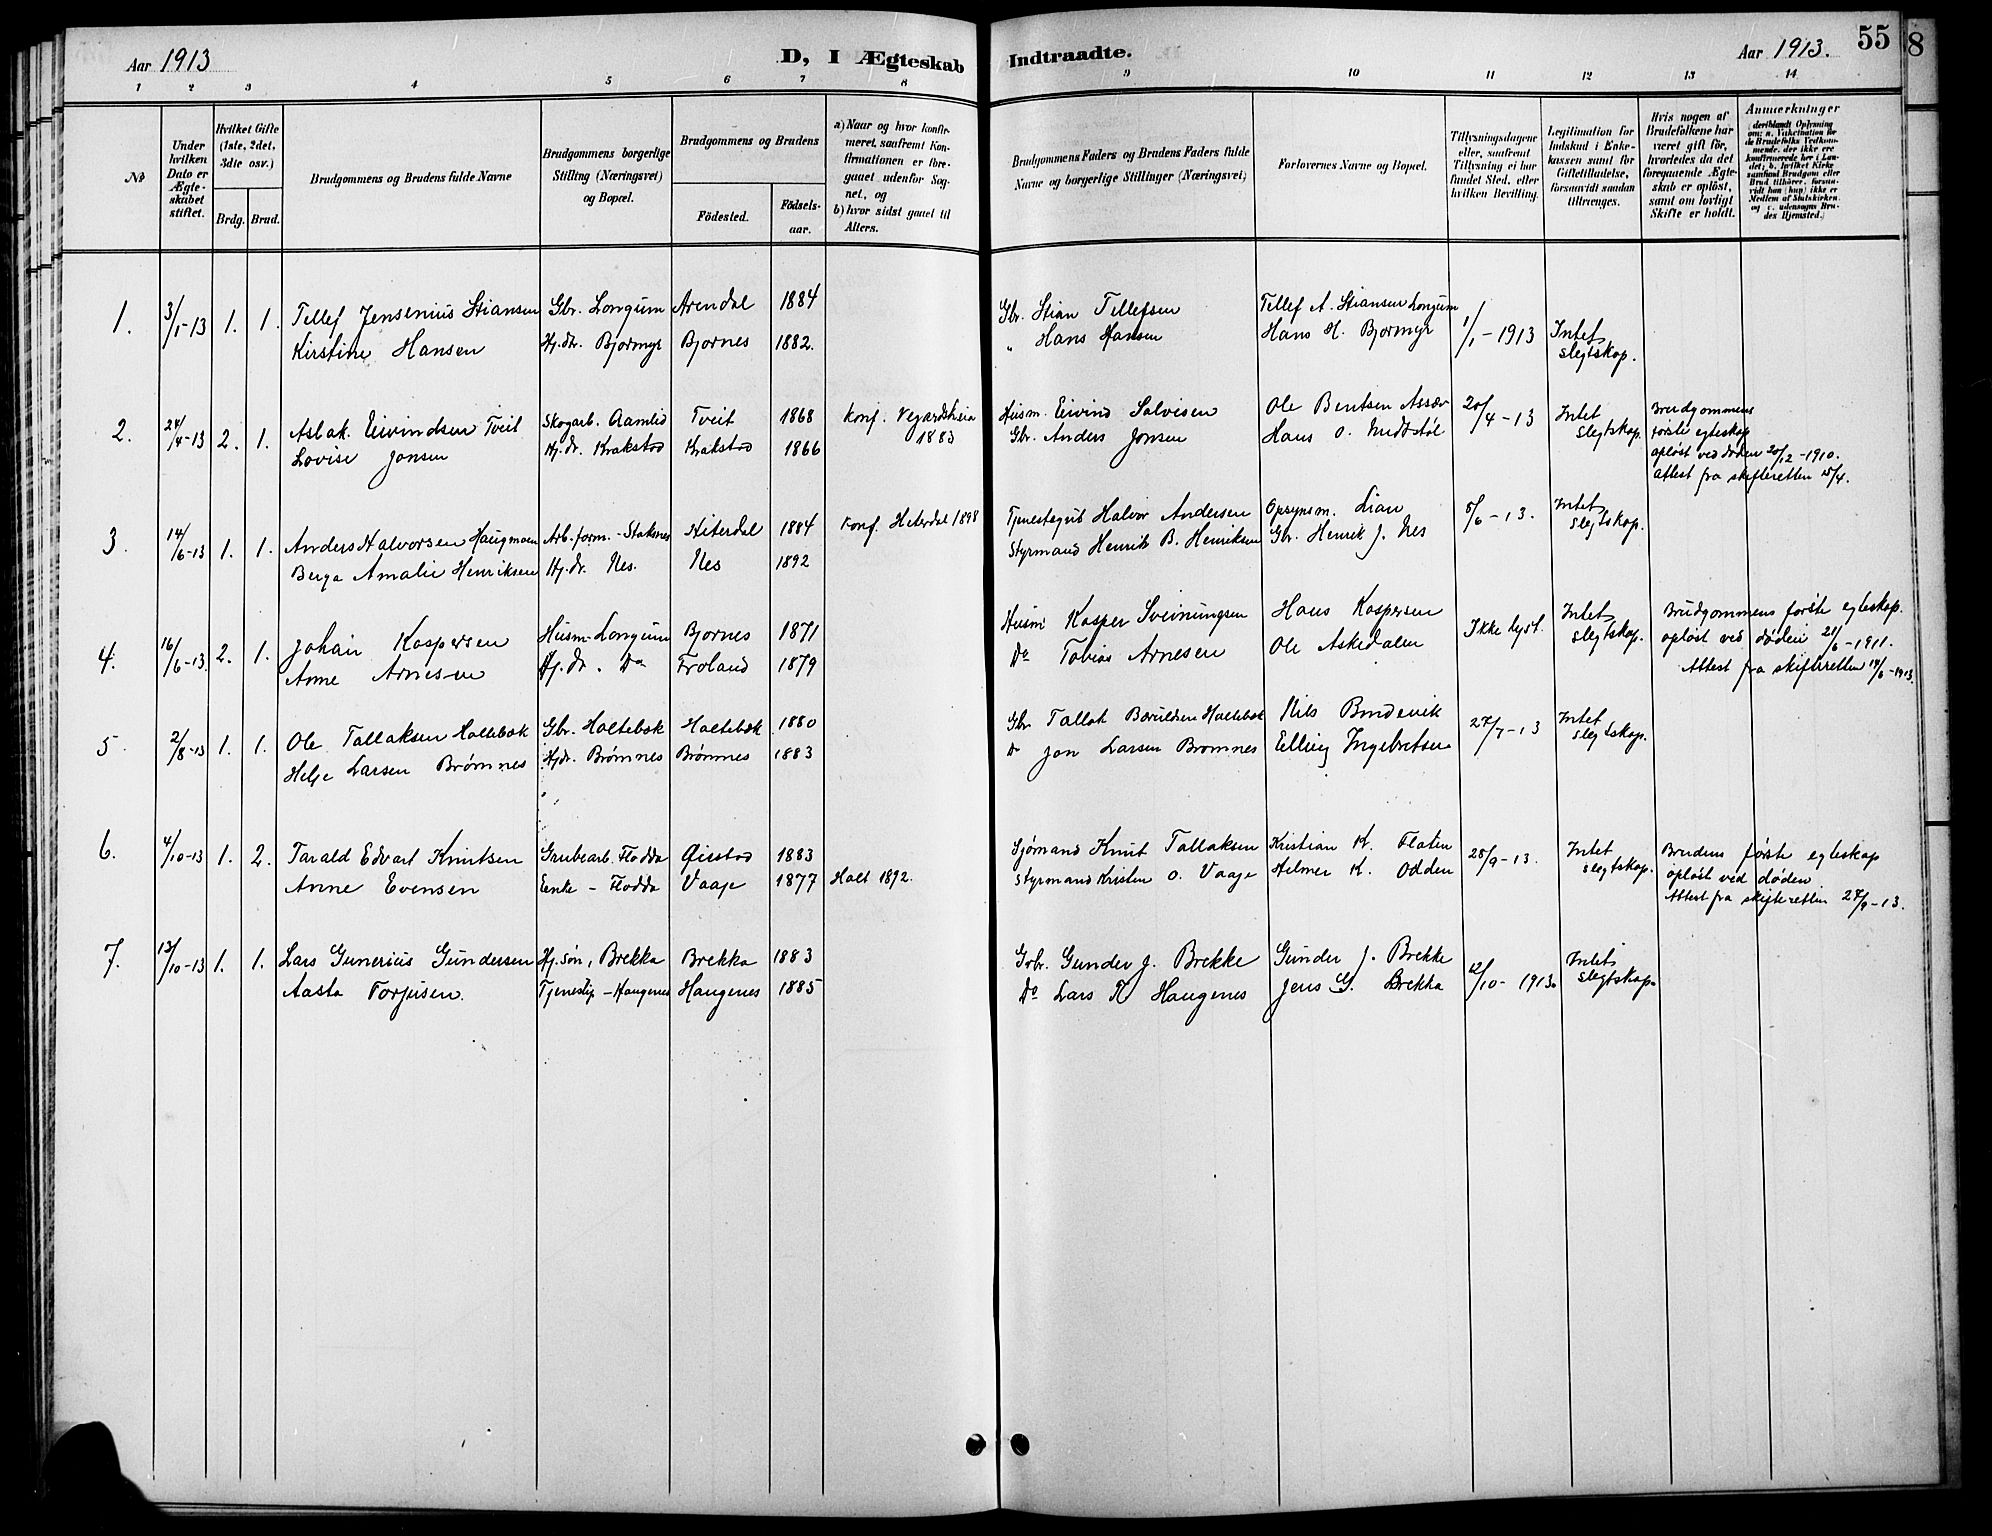 Aar 1913
D, I Ægteskab Indtraadte.
Aar 1913.
55
8
1 2 3 4 5 6 7 8 9 10 11 12 13 14
No
Under hvilken Dato er Ægteskabet stiftet.
Hvilket Gifte (1ste, 2det, 3die osv.)
Brdg. Brud.
Brudgommens og Brudens fulde Navne
Brudgommens borgerlige Stilling (Næringsvei) og Bopæl.
Brudgommens og Brudens
Födested.
Födselsaar.
a) Naar og hvor konfirmeret, saafremt Konfirmationen er foregaaet udenfor Sognet, og
b) hvor sidst gaaet til Alters.
Brudgommens Faders og Brudens Faders fulde Navne og borgerlige Stillinger (Næringsvei)
Forlovernes Navne og Bopæl.
Tillysningsdagene eller, saafremt Tillysning ei har fundet Sted, efter hvilken Bevilling.
Legitimation for Indskud i Enkekassen samt for Giftetilladelse, forsaavidt saadan tiltrænges.
Hvis nogen af Brudefolkene har været gift för, hvorledes da det foregaaende Ægteskab er oplöst, samt om lovligt Skifte er holdt.
Anmærkninger (deriblandt Oplysning om: a. Vakcination for de Brudefolks Vedkommende, der ikke ere konfirmerede her i Landet; b. hvilket Kirkesamfund Brudgom eller Brud tilhörer, forsaavidt han (hun) ikke er Medlem af Statskirken og c. udensogns Brudes Hjemsted.)
1. 3/1-13 1. 1. Tellef Jensenius Stiansen Gbr. Longum Arendal 1884 Gbr. Stian Tellefsen Tellef A. Stiansen Longum 1/1-1913 Intet slegtskap.
Kirstine Hansen Hj.dr. Bjormyr Bjornes 1882. " Hans Hansen Hans H. Bjormyr
2. 24/4-13 2. 1. Aslak Eivindsen Tveit Skogarb. Aamlid Tveit 1868 Konf. Vegardsheia 1883 Husm. Eivind Salvesen Ole Bentsen 20/4-13 Intet slegtskap. Brudgommens første egteskap opløst ved døden 20/12-1910. Attest fra skifteretten 15/4.
Lovise Jonsen Hj.dr. Krakstad Krakstad 1866 Gbr. Anders Jonsen Hans O.
3. 14/6-13 1. 1. Anders Halvorsen Haugmoen Arb.form. - Staksnes Hiterdal 1884 Konf. Hiterdal 1898 Tjenestegut Halvor Andersen Opsynsm. Lian 8/6-13. Intet slegtskap.
Berga Amalie Henriksen Hj.dr. Nes. Nes 1892 Styrmand Henrik B. Henriksen Gbr. Henrik J. Nes
4. 16/6-13 2. 1. Johan Kaspersen Husm. Longum Bjornes 1871 Husm. Kasper Sveinungsen Hans Kaspersen Ikke lyst. Intet slegtskap. Brudgommens første egteskap. opløst ved døden 21/6-1911. Attest fra skifteretten 14/6-1913.
Anne Arnesen Hj.dr. Do Froland 1879 Do Tobias Arnesen Ole Askedalen
5. 2/8-13 1. 1. Ole Tallaksen Holtebæk Gbr. Holtebæk Holtebæk 1880 Gbr. Tallak Holtebæk Nils 27/7-13 Intet slegtskap.
Helje Larsen Brømnes Hj.dr. Brømnes Brømnes 1883 Do Jon Larsen Bromnes Elling Ingebretsen
6. 4/10-13 1. 2. Tarald Edvart Knutsen Grubearb. Flodda Øiestad 1883 Sjømand Knut Tallaksen Kristian K. Flaten 28/9-13. Intet slegtskap. Brudens første egteskap opløst ved døden. Attest fra skifteretten 27/9-13.
Anne Evensen Enke - Flodda Vaaje 1877 Holt 1892. Styrmand Kristen O. Vaaje Helmer K. Odden
7. 13/10-13 1. 1. Lars Gunerius Gundersen Hj.søn, Brekka Brekka 1883 Grbr. Gunder J. Brekke Gunder J. Brekke 12/10-1913. Intet slegtskap.
Aasta Torjusen. Tjenestep - Haugenes Haugenes 1885 Do Lars K Haugenes Jens G. Brekka